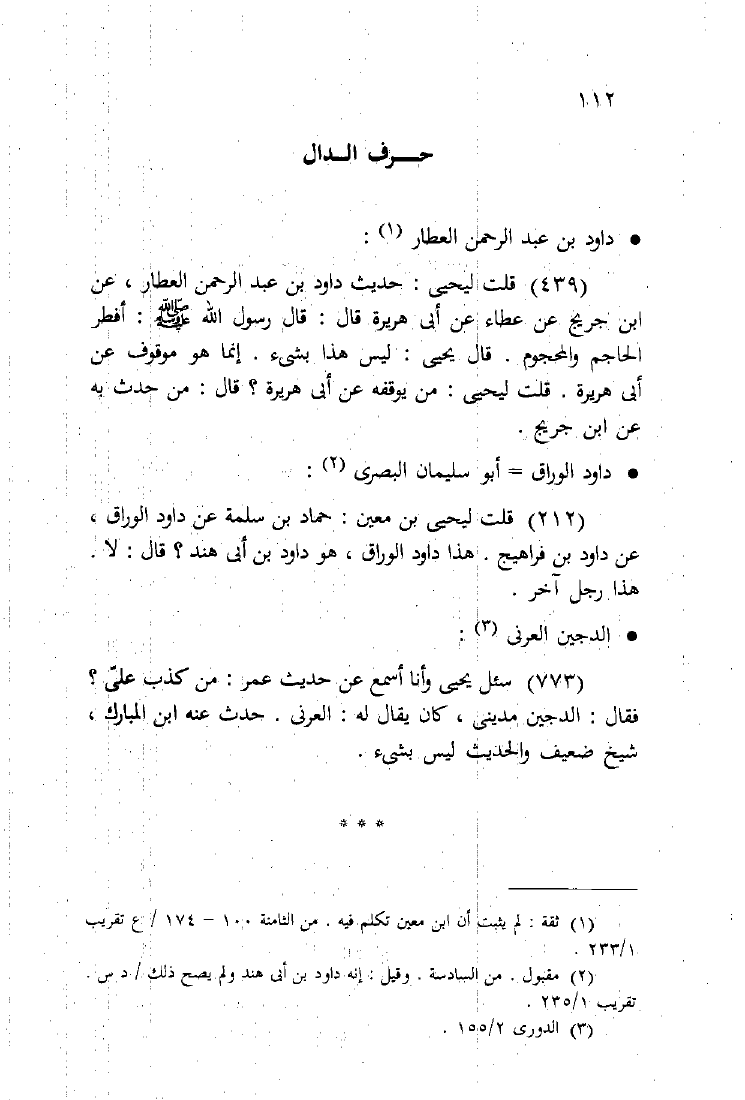 ١١٢
حـــرف الـدال
● داود بن عبد الرحمن العطار (١) :
(٤٣٩) قلت ليحيى : حديث داود بن عبد الرحمن العطار ، عن
ابن جريج عن عطاء عن أبى هريرة قال : قال رسول الله ﷺ : أفطر
الحاجم والمحجوم . قال يحيى : ليس هذا بشىء . إنما هو موقوف عن
أبى هريرة . قلت ليحيى : من يوقفه عن أبى هريرة ؟ قال : من حدث به
عن ابن جريج .
● داود الوراق = أبو سليمان البصرى (٢) :
(٢١٢) قلت ليحيى بن معين : حماد بن سلمة عن داود الوراق ،
عن داود بن فراهيج . هذا داود الوراق ، هو داود بن أبى هند ؟ قال : لا .
هذا رجل آخر .
● الدجين العرنى (٣) :
(٧٧٣) سئل يحيى وأنا أسمع عن حديث عمر : من كذب علىّ ؟
فقال : الدجين مدينى ، كان يقال له : العرنى . حدث عنه ابن المبارك ،
شيخ ضعيف والحديث ليس بشىء .
* * *
(١) ثقة : لم يثبت أن ابن معين تكلم فيه . من الثامنة ١٠٠ – ١٧٤ / ع تقريب
٢٣٣/١ .
(٢) مقبول . من السادسة . وقيل : إنه داود بن أبى هند ولم يصح ذلك / د س .
تقريب ٢٣٥/١ .
(٣) الدورى ١٥٥/٢ .